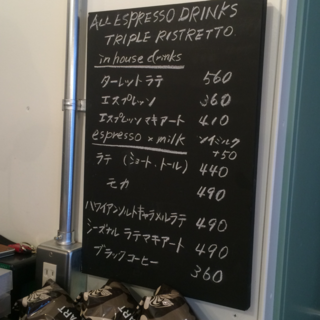 ALL ESPRESSO DRINKS
TRIPLE RISTRETTO
in house drinks
ターレットラテ 560
エスプレッソ 360
エスプレッソ マキアート 410
espresso × milk ソイミルク +50
ラテ (ショート、トール) 440
モカ 490
ハワイアンソルトキャラメルラテ 490
シーズナル ラテマキアート 490
ブラックコーヒー 360